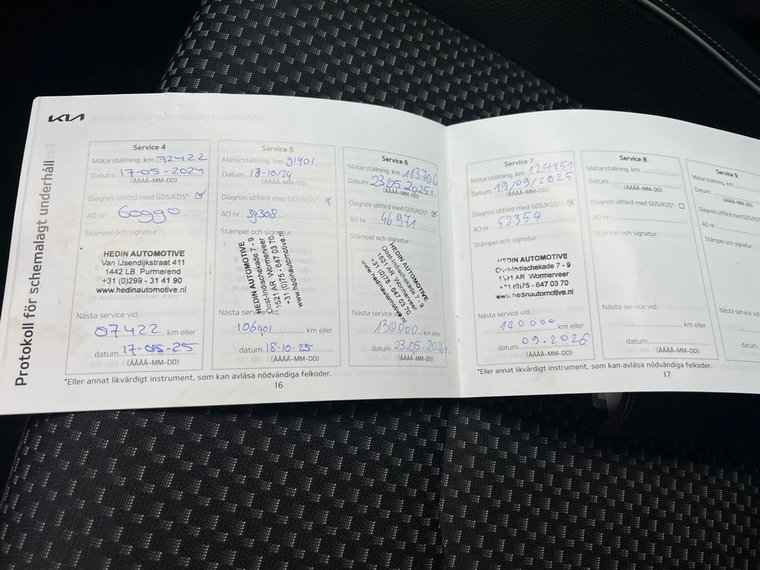 KIA
Protokoll för schemalagt underhåll
Service 4
Mätarställning, km 72422
Datum: 17-05-2024
(ÅÅÅÅ-MM-DD)
Diagnos utförd med GDS/KDS*
AO nr
Stämpel och signatur:
HEDIN AUTOMOTIVE
Van IJsendijkstraat 411
1442 LB Purmerend
+31 (0)299 - 31 41 90
www.hedinautomotive.nl
Nästa service vid;
87422 km eller
datum 17-05-25
(ÅÅÅÅ-MM-DD)
Service 5
Mätarställning, km 91401
Datum: 18-10/24
(ÅÅÅÅ-MM-DD)
Diagnos utförd med GDS/KDS*
AO nr 39308
Stämpel och signatur:
HEDIN AUTOMOTIVE
Oost-Indischekade 7 - 9
1521 AR Wormerveer
+31 (0)75 - 647 03 70
www.hedinautomotive.nl
Nästa service vid;
106401 km eller
datum 18-10-25
(ÅÅÅÅ-MM-DD)
Service 6
Mätarställning, km 113706
Datum: 23.05.2025r.
(ÅÅÅÅ-MM-DD)
Diagnos utförd med GDS/KDS*
AO nr 46971
Stämpel och signatur:
HEDIN AUTOMOTIVE
Oost-Indischekade 7 - 9
1521 AR Wormerveer
+31 (0)75 - 647 03 70
www.hedinautomotive.nl
Nästa service vid;
130000 km eller
datum 23.05.2026r.
(ÅÅÅÅ-MM-DD)
*Eller annat likvärdigt instrument, som kan avläsa nödvändiga felkoder.
16
Service 7
Mätarställning, km 124851
Datum: 19/09/2025
(ÅÅÅÅ-MM-DD)
Diagnos utförd med GDS/KDS*
AO nr 52354
Stämpel och signatur:
HEDIN AUTOMOTIVE
Oost-Indischekade 7 - 9
1521 AR Wormerveer
+31 (0)75 - 647 03 70
www.hedinautomotive.nl
Nästa service vid;
140000 km eller
datum 09.2026
(ÅÅÅÅ-MM-DD)
Service 8
Mätarställning, km
Datum:
(ÅÅÅÅ-MM-DD)
Diagnos utförd med GDS/KDS*
AO nr
Stämpel och signatur:
Nästa service vid;
km eller
datum
(ÅÅÅÅ-MM-DD)
Service 9
Mätarställning, km
Datum:
(ÅÅÅÅ-MM-DD)
Diagnos utförd med
AO nr
Stämpel och signatur:
Nästa service vid;
datum
*Eller annat likvärdigt instrument, som kan avläsa nödvändiga felkoder.
17